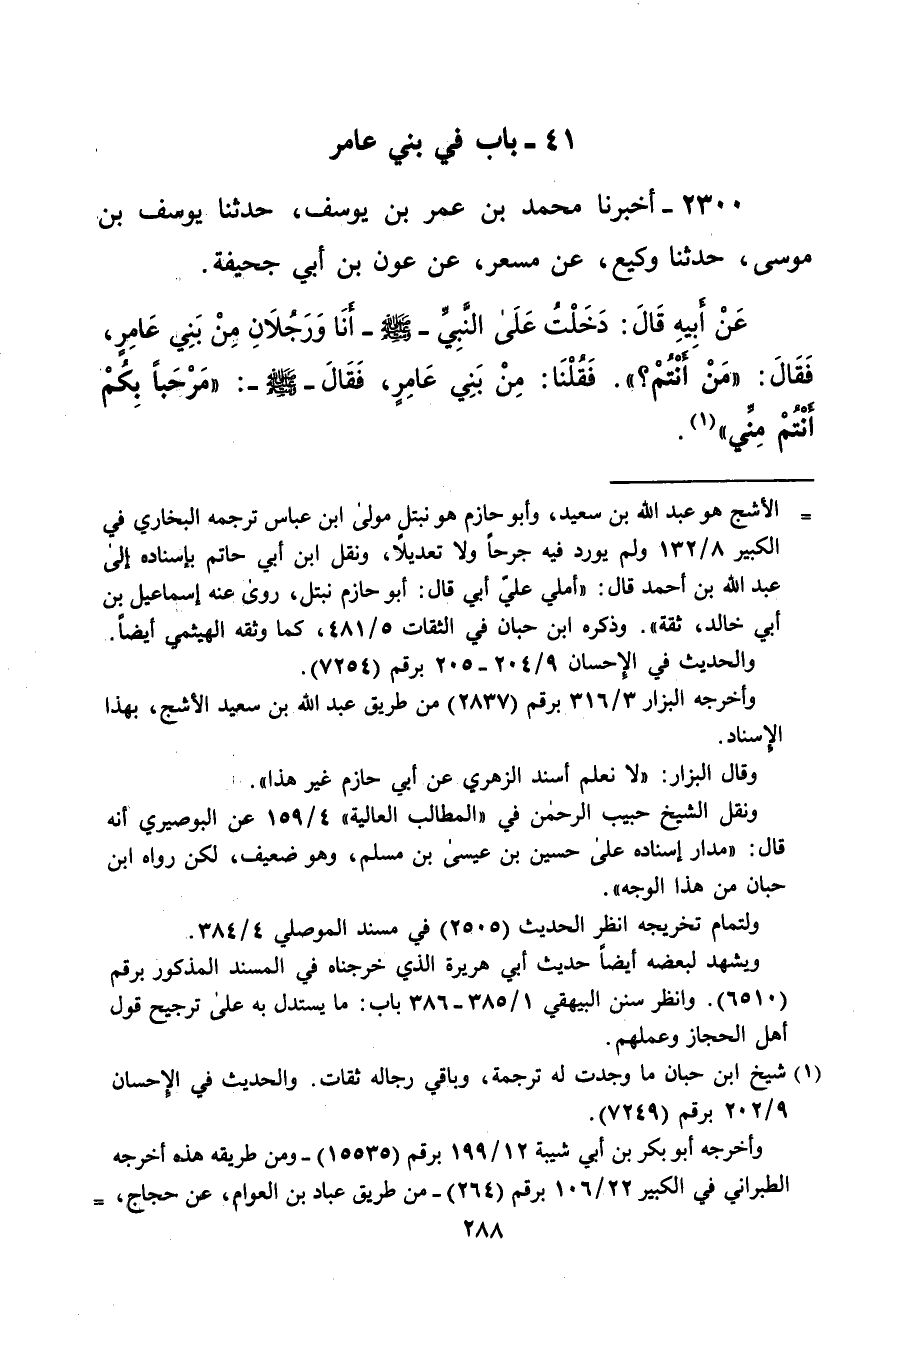 ٤١ - باب في بني عامر
٢٣٠٠ - أخبرنا محمد بن عمر بن يوسف، حدثنا يوسف بن
موسى، حدثنا وكيع، عن مسعر، عن عون بن أبي جحيفة.
عَنْ أَبِيهِ قَالَ: دَخَلْتُ عَلَىٰ النَّبِيِّ - ﷺ - أَنَا وَرَجُلَانِ مِنْ بَنِي عَامِرٍ،
فَقَالَ: «مَنْ أَنْتُمْ؟». فَقُلْنَا: مِنْ بَنِي عَامِرٍ، فَقَالَ - ﷺ -: «مَرْحَباً بِكُمْ
أَنْتُمْ مِنِّي»(١).
= الأشج هو عبد الله بن سعيد، وأبو حازم هو نبتل مولىٰ ابن عباس ترجمه البخاري في
الكبير ١٣٢/٨ ولم يورد فيه جرحاً ولا تعديلاً، ونقل ابن أبي حاتم بإسناده إلىٰ
عبد الله بن أحمد قال: «أملي عليّ أبي قال: أبو حازم نبتل، روىٰ عنه إسماعيل بن
أبي خالد، ثقة». وذكره ابن حبان في الثقات ٤٨١/٥، كما وثقه الهيثمي أيضاً.
والحديث في الإحسان ٢٠٤/٩ - ٢٠٥ برقم (٧٢٥٤).
وأخرجه البزار ٣١٦/٣ برقم (٢٨٣٧) من طريق عبد الله بن سعيد الأشج، بهذا
الإسناد.
وقال البزار: «لا نعلم أسند الزهري عن أبي حازم غير هذا».
ونقل الشيخ حبيب الرحمٰن في «المطالب العالية» ١٥٩/٤ عن البوصيري أنه
قال: «مدار إسناده علىٰ حسين بن عيسىٰ بن مسلم، وهو ضعيف، لكن رواه ابن
حبان من هذا الوجه».
ولتمام تخريجه انظر الحديث (٢٥٠٥) في مسند الموصلي ٣٨٤/٤.
ويشهد لبعضه أيضاً حديث أبي هريرة الذي خرجناه في المسند المذكور برقم
(٦٥١٠). وانظر سنن البيهقي ٣٨٥/١ - ٣٨٦ باب: ما يستدل به علىٰ ترجيح قول
أهل الحجاز وعملهم.
(١) شيخ ابن حبان ما وجدت له ترجمة، وباقي رجاله ثقات. والحديث في الإحسان
٢٠٢/٩ برقم (٧٢٤٩).
وأخرجه أبو بكر بن أبي شيبة ١٩٩/١٢ برقم (١٥٥٣٥) - ومن طريقه هذه أخرجه
الطبراني في الكبير ١٠٦/٢٢ برقم (٢٦٤) - من طريق عباد بن العوام، عن حجاج، =
٢٨٨